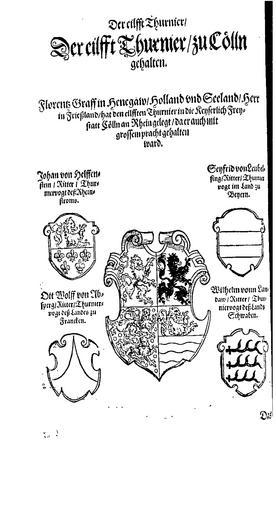 Der eilfft Thurnier/
Der eilfft Thurnier/zu Cölln
gehalten.
Florentz Graff in Henegaw/Holland vnd Seeland/Herr
in Frießland/hat den eilfften Thurnier in die Keyserlich Frey-
statt Cölln an Rhein gelegt/da er auch mit
grossem pracht gehalten
ward.
Johan von Helffen-
stein/Ritter/Thur-
niervogt deß Rhein-
stroms.
Seyfrid von
sing/Ritter/Thurnier
vogt im Land zu
Beyern.
Ott Wolff von Ab-
sperg/Ritter/Thurnier-
vogt deß Landes zu
Francken.
Wilhelm vonn Lan-
daw/Ritter/Thur-
niervogt deß Lands
Schwaben.